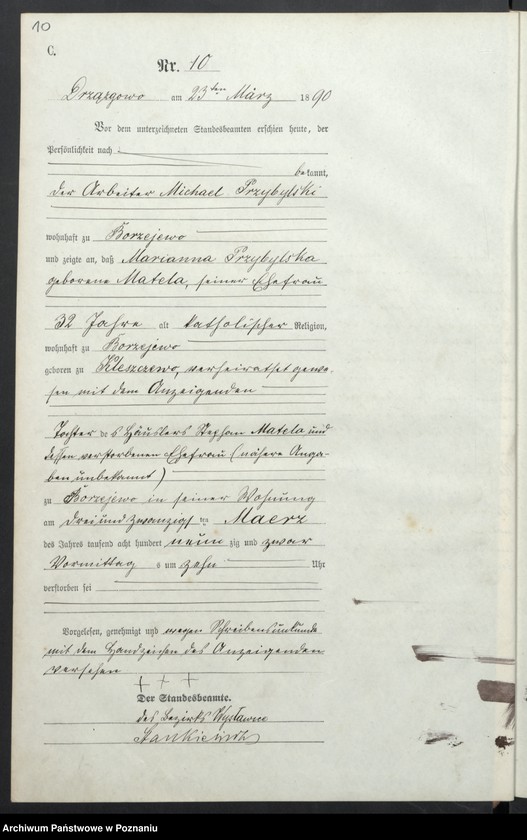 10
C.
Nr. 10
Drzązgowo am 23ten März 1890
Vor dem unterzeichneten Standesbeamten erschien heute, der
Persönlichkeit nach
bekannt,
der Arbeiter Michael Przybylski
wohnhaft zu Borzejewo
und zeigte an, daß Marianna Przybylska
geborene Matela, seiner Ehefrau
32 Jahre alt katholischer Religion,
wohnhaft zu Borzejewo
geboren zu Kleszczewo, verheirathet gewe-
sen mit dem Anzeigenden
Tochter des Häuslers Stephan Matela und
dessen verstorbenen Ehefrau (nähere Anga-
ben unbekannt)
zu Borzejewo in seiner Wohnung
am dreiundzwanzigsten Maerz
des Jahres tausend acht hundert neunzig und zwar
Vormittags um zehn Uhr
verstorben sei
Vorgelesen, genehmigt und wegen Schreibensunkunde
mit dem Handzeichen des Anzeigenden
versehen
+ + +
Der Standesbeamte.
des Bezirks
Archiwum Państwowe w Poznaniu